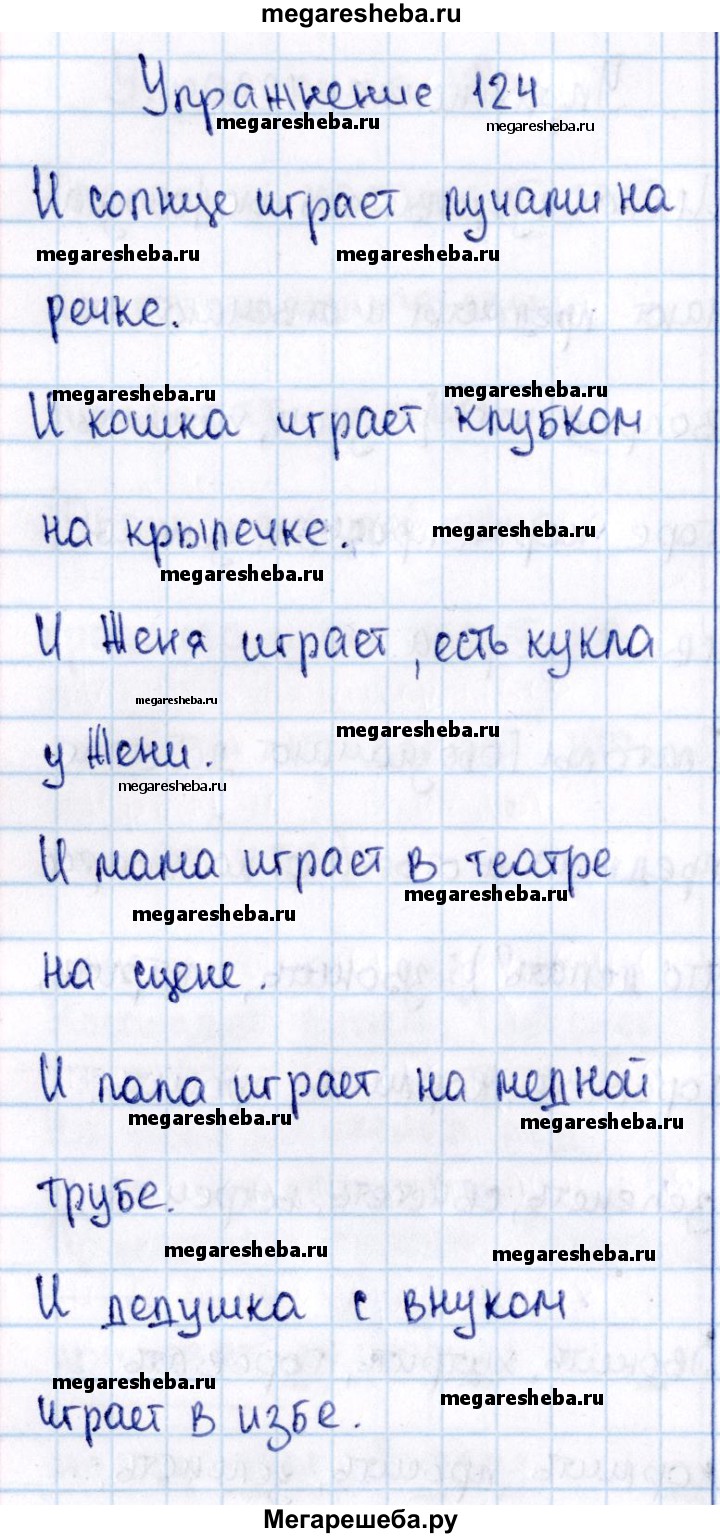 megaresheba.ru
Упражнение 124
megaresheba.ru megaresheba.ru
И солнце играет лучами на
megaresheba.ru megaresheba.ru
речке.
megaresheba.ru megaresheba.ru
И кошка играет клубком
на крылечке. megaresheba.ru
megaresheba.ru
И Женя играет, есть кукла
megaresheba.ru megaresheba.ru
у Жени.
megaresheba.ru
И мама играет в театре
megaresheba.ru megaresheba.ru
на сцене.
И папа играет на медной
megaresheba.ru megaresheba.ru
трубе.
megaresheba.ru megaresheba.ru
И дедушка с внуком
megaresheba.ru megaresheba.ru
играет в избе.
Мегарешеба.ру